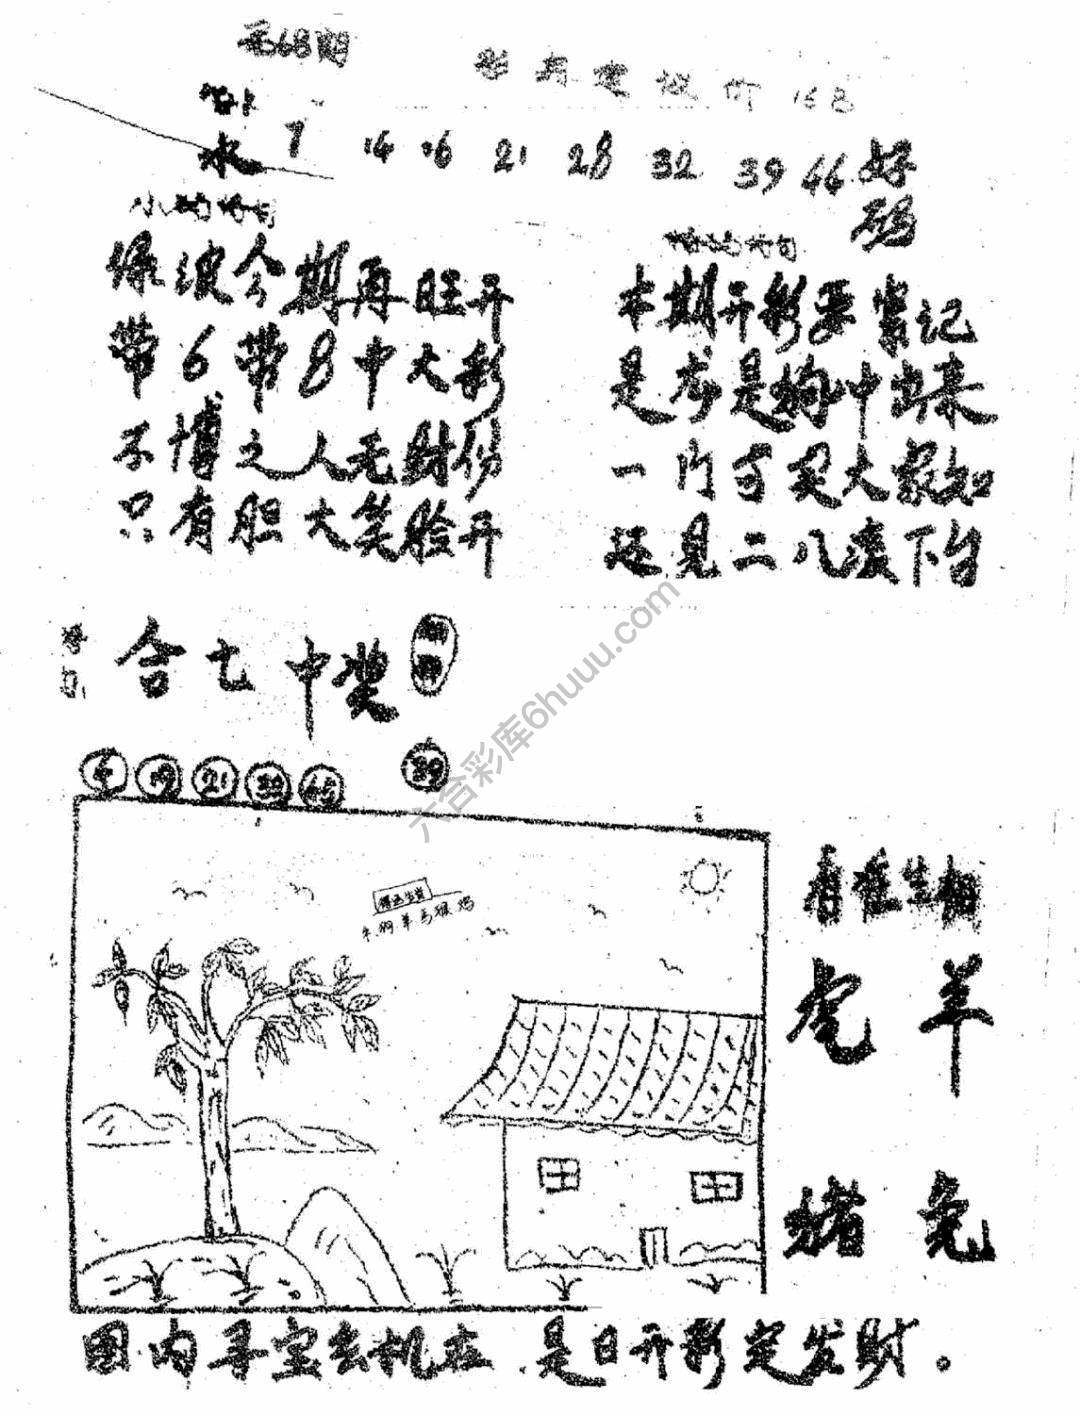 第68期
168
水 7 14 16 21 28 32 39 46 好码
绿波今期再旺开
带6带8中大彩
不博之人无财份
只有胆大笑脸开
本期开彩要紧记
是龙是狗冲出来
一门可买大家知
还见二八凑下台
合七中奖
4 19 21 32 45 39
牛狗羊马猴鸡
生相
虎 羊
猪 兔
图内寻宝玄机在 是日开彩定发财。
六合彩库6huuu.com